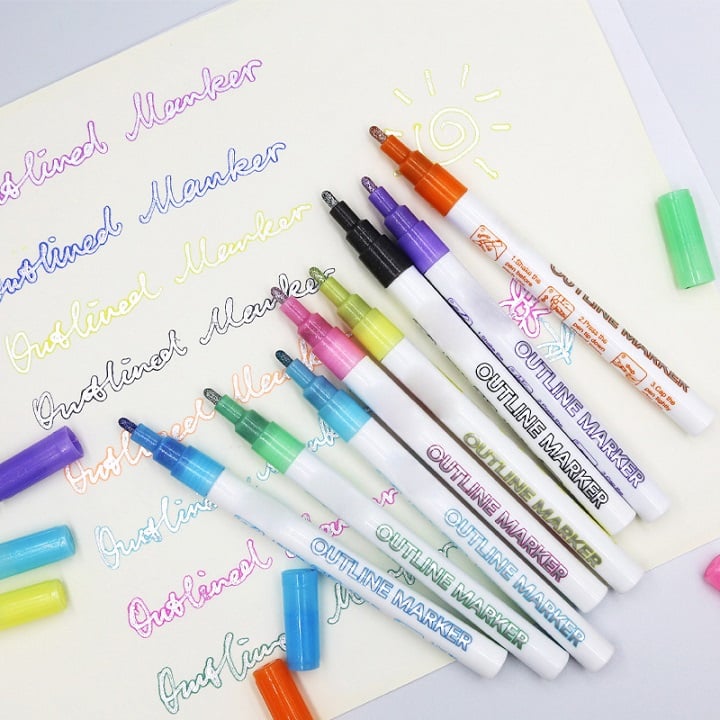 utlined Marker
Outlined Marker
Outlined Marker
Outlined Marker
Outlined Marker
Outlined
Outlined Marker
Outlined M
OUTLINE MARKER
1.Shake the
pen before
2.Press the
pen tip down
3.Cap the
pen tightly
OUTLINE MARKER
OUTLINE MARKER
OUTLINE MARKER
OUTLINE MARKER
OUTLINE MARKER
OUTLINE MARKER
OUTLINE MARKER